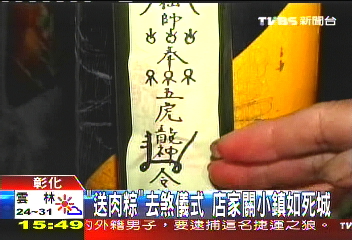 TVBS 新聞台
祖師
奉
五虎龍神
令
彰化
雲林
24~31
"送肉粽"去煞儀式 店家關小鎮如死城
15:49
的外籍男子，要逮捕這名捷運之狼。